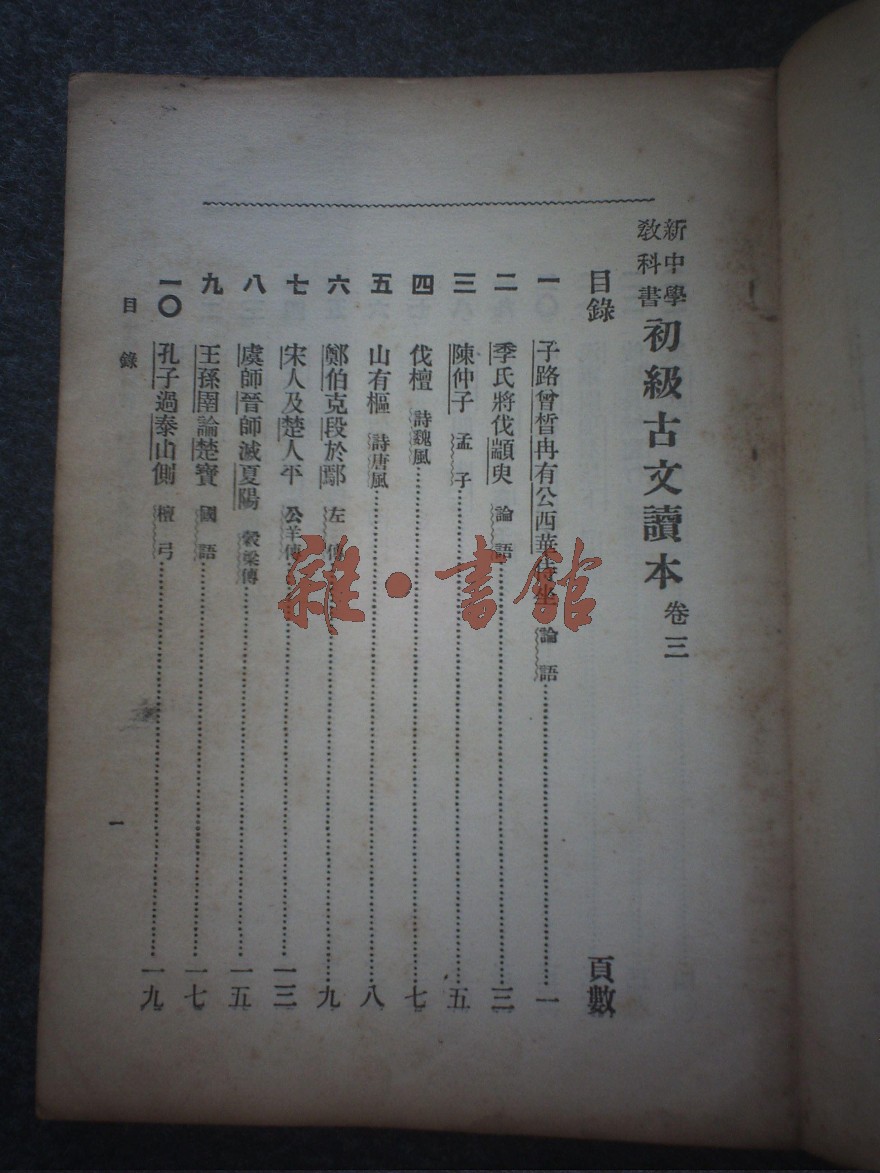 新中學
教科書
初級古文讀本 卷三
目錄 頁數
一 子路曾皙冉有公西華侍坐 論語 一
二 季氏將伐顓臾 論語 三
三 陳仲子 孟子 五
四 伐檀 詩魏風 七
五 山有樞 詩唐風 八
六 鄭伯克段於鄢 左傳 九
七 宋人及楚人平 公羊傳 一三
八 虞師晉師滅夏陽 穀梁傳 一五
九 王孫圉論楚寶 國語 一七
一〇 孔子過泰山側 檀弓 一九
目錄 一
雜·書館